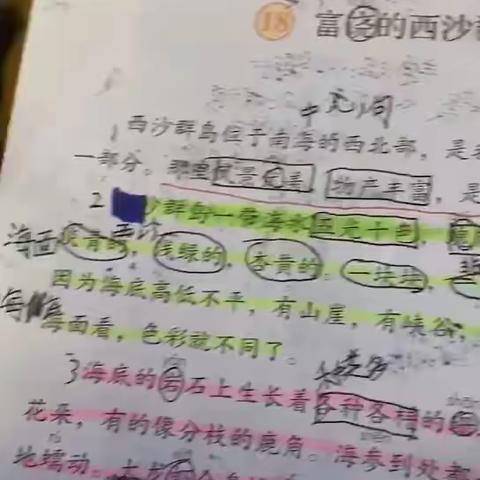 18 富饶的西沙
中心词
1 西沙群岛位于南海的西北部，是
一部分。那里风景优美 物产丰富，是
2 沙群岛一带海水五光十色，
海面 的，浅绿的，杏黄的。一块块，
因为海底高低不平，有山崖，有峡谷，
海面看，色彩就不同了。
3 海底的岩石上生长着各种各样的
花朵，有的像分枝的鹿角。海参到处都
地蠕动。大龙